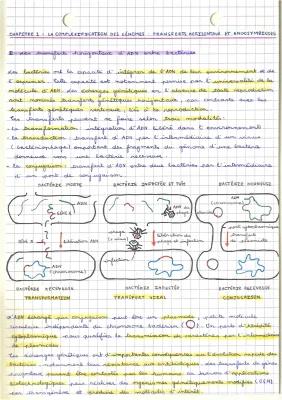 CHAPITRE 1 : LA COMPLEXIFICATION DES GÉNOMES : TRANSFERTS HORIZONTAUX ET ENDOSYMBIOSES
I. Des transferts horizontaux d'ADN entre bactéries
Les bactéries ont la capacité d'intégrer de l'ADN de leur environnement et de
l'exprimer. Cette capacité est notamment permise par l'universalité de la
molécule d'ADN. Des échanges génétiques en l'absence de toute reproduction
sont nommés transferts génétiques horizontaux, par contraste avec les
transferts génétiques verticaux liés à la reproduction.
Les transferts peuvent se faire selon trois modalités :
- la transformation : intégration d'ADN libéré dans l'environnement
- la transduction : transfert d'ADN par l'intermédiaire d'un virus
(bactériophage) emportant des fragments du génome d'une bactérie
donneuse vers une bactérie receveuse.
- la conjugaison : transfert d'ADN entre deux bactéries par l'intermédiaire
d'un pont de conjugaison.
BACTÉRIE MORTE BACTÉRIE INFECTÉE ET TUÉE BACTÉRIE DONNEUSE
ADN
GÈNE A
libération ADN
ADN
(chromosome)
phage
(virus)
ADN du phage
libération du phage et infection
infection
ADN
(chromosome)
pont cytoplasmique
transfert de plasmide
BACTÉRIE RECEVEUSE BACTÉRIE INFECTÉE BACTÉRIE RECEVEUSE
TRANSFORMATION TRANSFERT VIRAL CONJUGAISON
L'ADN échangé par conjugaison peut être un plasmide, petite molécule
circulaire indépendante du chromosome bactérien. On parle d'hérédité
cytoplasmique pour qualifier la transmission de caractères par l'intermédiaire
de plasmides.
Les échanges génétiques ont d'importantes conséquences sur l'évolution rapide des
bactéries, notamment leur résistance aux antibiotiques. Les transferts de gènes
peuvent avoir d'applications
biotechnologiques pour réaliser des organismes génétiquement modifiés (OGM)
par transgénèse et produire des molécules d'intérêt.